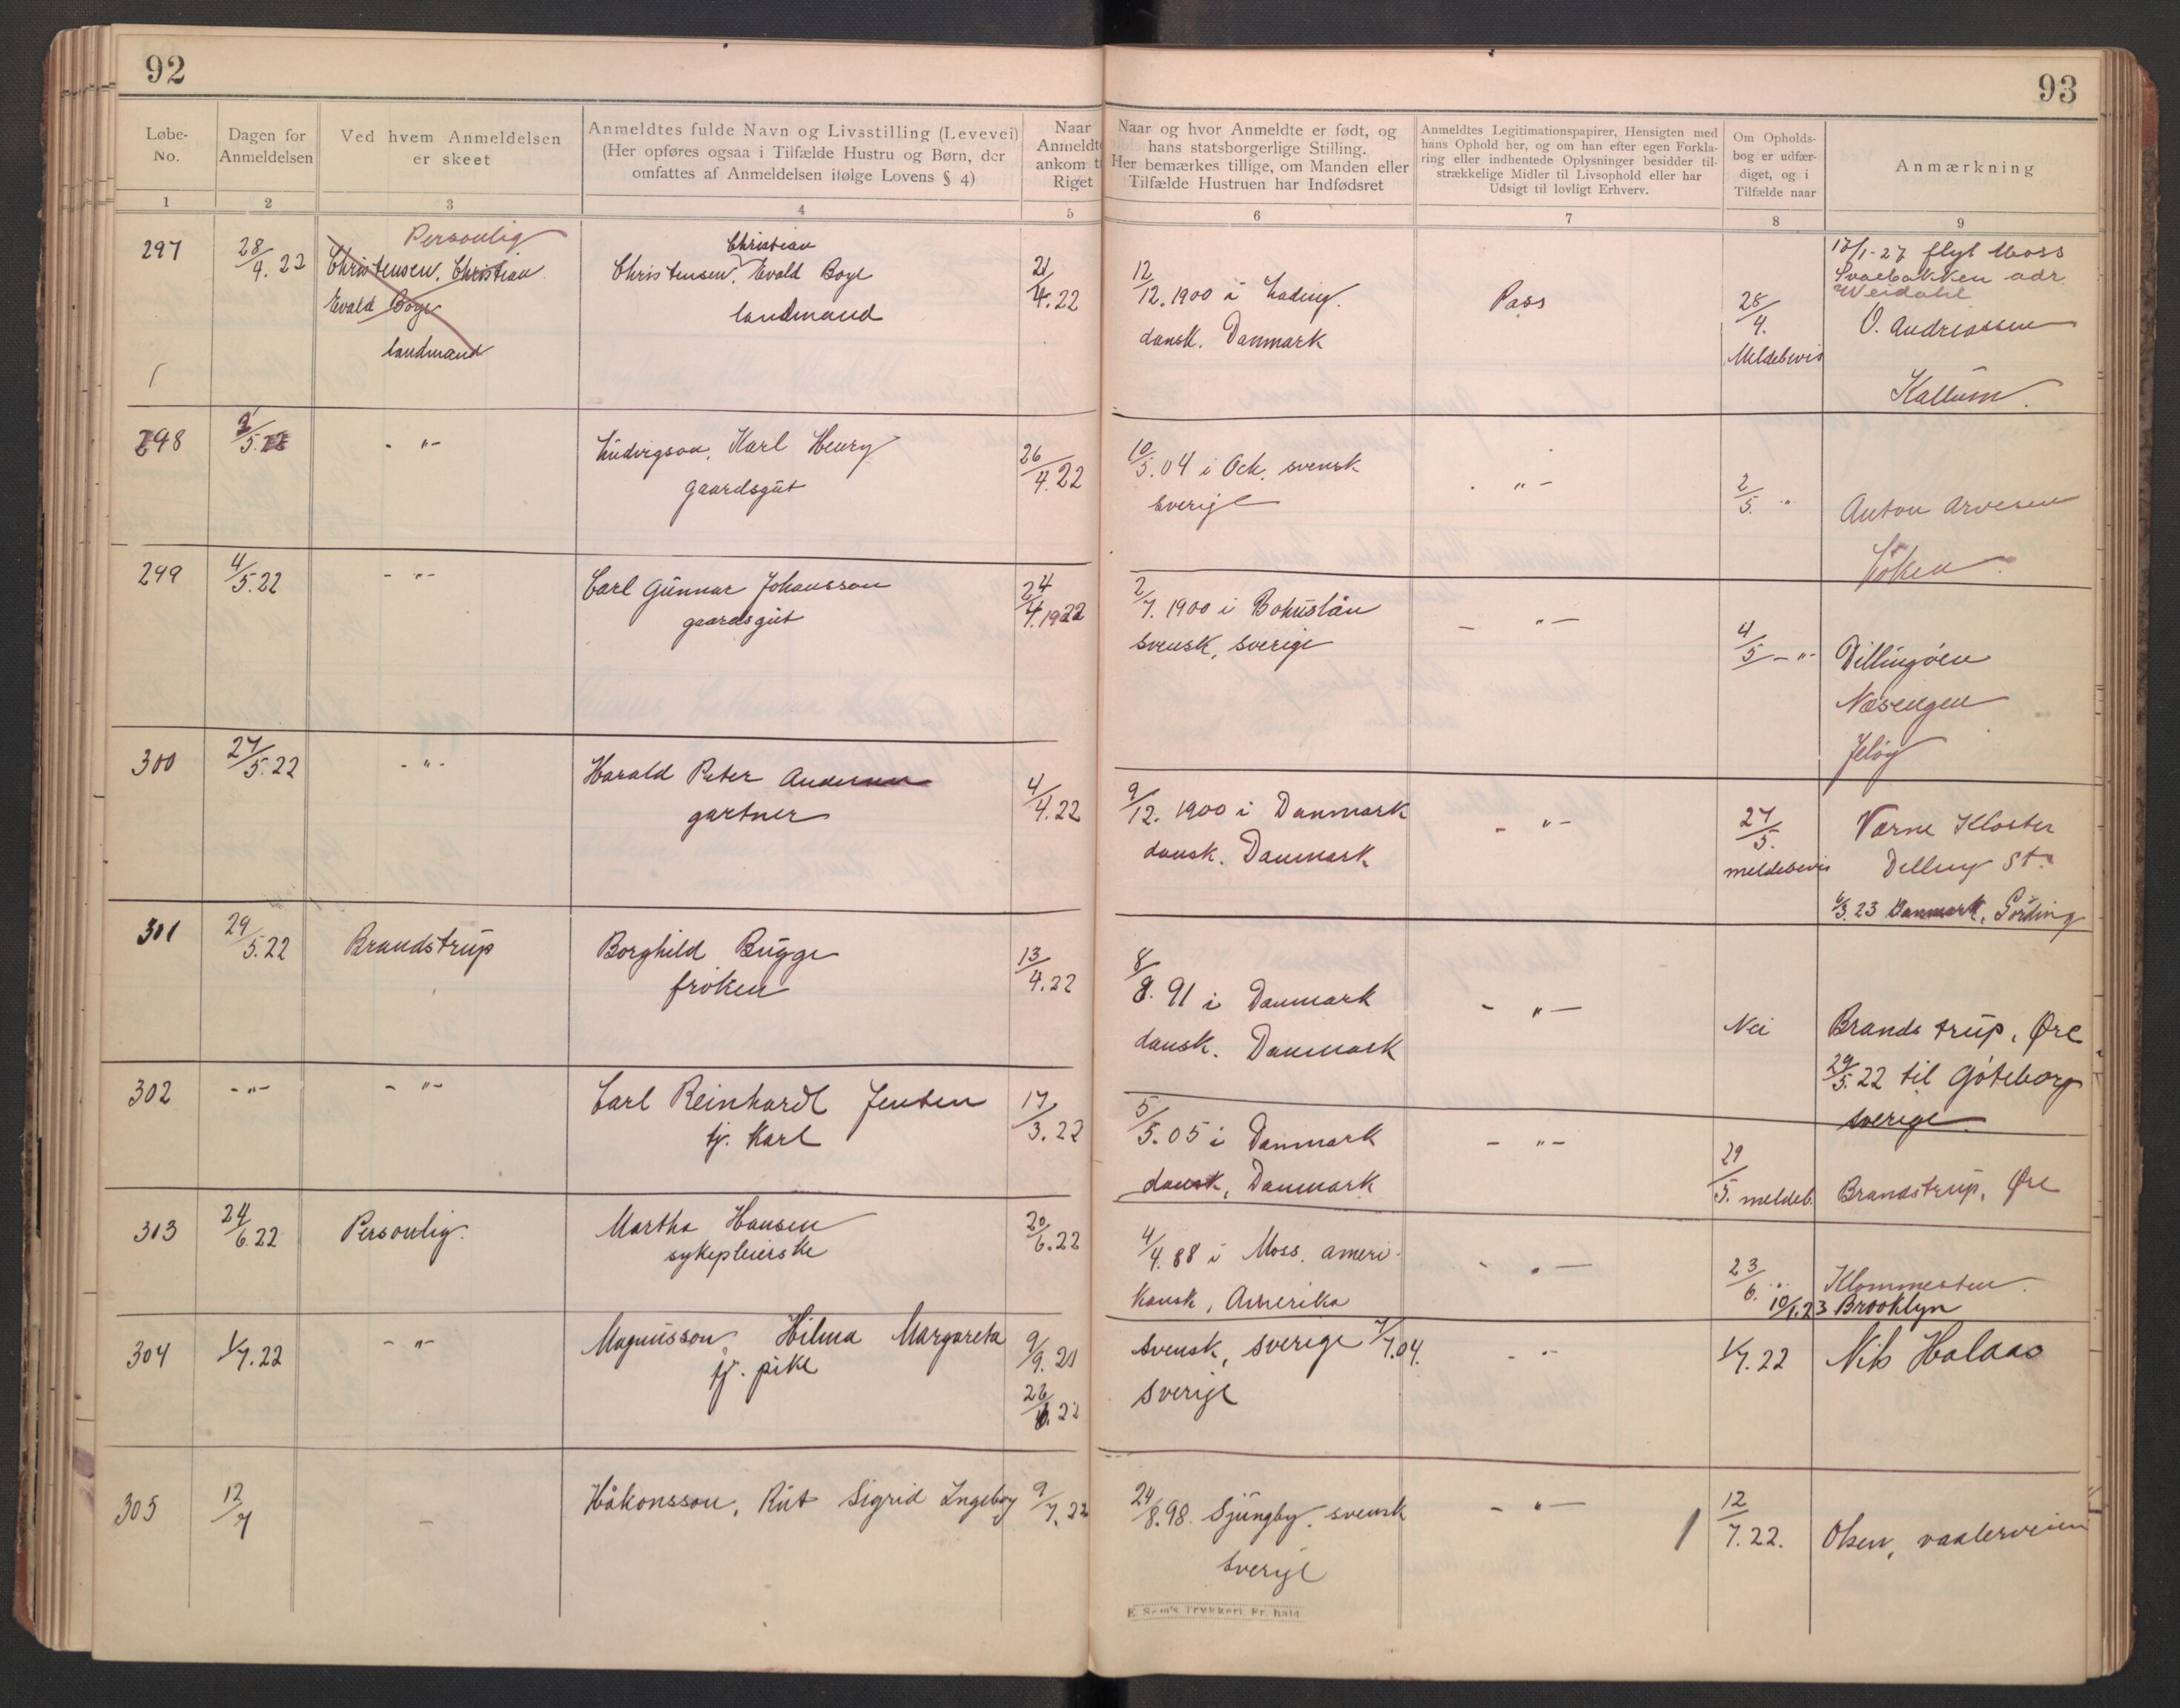 92
93
Løbe-
No.
Dagen for
Anmeldelsen
Ved hvem Anmeldelsen
er skeet
Anmeldtes fulde Navn og Livsstilling (Levevei)
(Her opføres ogsaa i Tilfælde Hustru og Børn, der
omfattes af Anmeldelsen ifølge Lovens § 4)
Naar
Anmeldte
ankom ti
Riget
Naar og hvor Anmeldte er født, og
hans statsborgerlige Stilling.
Her bemærkes tillige, om Manden eller
Tilfælde Hustruen har Indfødsret
Anmeldtes Legitimationspapirer, Hensigten med
hans Ophold her, og om han efter egen Forkla-
ring eller indhentede Oplysninger besidder til-
strækkelige Midler til Livsophold eller har
Udsigt til lovligt Erhverv.
Om Opholds-
bog er udfær-
diget, og i
Tilfælde naar
Anmærkning
1 2 3 4 5 6 7 8 9
297
28/4. 22
Personlig
Christensen, Christian
Evald Boye
landmand
Christian
Christensen, Evald Boye
landmand
21/4. 22
12/12. 1900 i Lading.
dansk. Danmark
Pass
28/4.
Meldebevis
17/1-27 flyt Moss
Svaebakken adr.
Weidahl
O. Andreassen
Kallum.
298
2/5. 22
- " -
Ludvigson, Karl Henry
gaardsgut
26/4. 22
10/5. 04 i Ock. svensk
Sverige
- " -
2/5. "
Anton Arvesen
299
4/5. 22
- " -
Carl Gunnar Johansson
gaardsgut
24/4. 1922
2/7. 1900 i Bohuslän
svensk, sverige
- " -
4/5 - " -
Dillingöen
Næsengen
Jelöy
300
27/5. 22
- " -
Harald Peter Andersen
gartner
4/4. 22
9/12. 1900 i Danmark
dansk. Danmark
- " -
27/5.
meldebevis
Værne Kloster
Dilling St.
6/3. 23 Danmark, Görding
301
29/5. 22
Brandstrup
Borghild Bugge
fröken
13/4. 22
8/8. 91 i Danmark
dansk. Danmark
- " -
Nei
Brandstrup, Øre
29/5. 22 til Göteborg
sverige
302
- " -
- " -
Carl Reinhardt Jensen
tj. karl
17/3. 22
5/5. 05 i Danmark
dansk, Danmark
- " -
29/5. meldeb.
Brandstrup, Øre
303
24/6. 22
Personlig.
Martha Hansen
sykepleierske
20/6. 22
4/4. 88 i Moss. ameri-
kansk, Amerika
- " -
23/6. "
Klommesten
10/1. 23 Brooklyn
304
1/7. 22
- " -
Magnusson, Hilma Margareta
tj. pike
9/9. 21
26/6. 22
svensk, sverige 7/7. 04.
Sverige
- " -
1/7. 22
Nils Holaas
305
12/7
-
Håkonsson, Rut Sigrid Ingeborg
9/7. 22
24/8. 98. Sjungby. svensk
Sverige
- " -
12/7. 22.
Olsen, vaalerveien
E. Sem's Trykkeri, Fr.hald